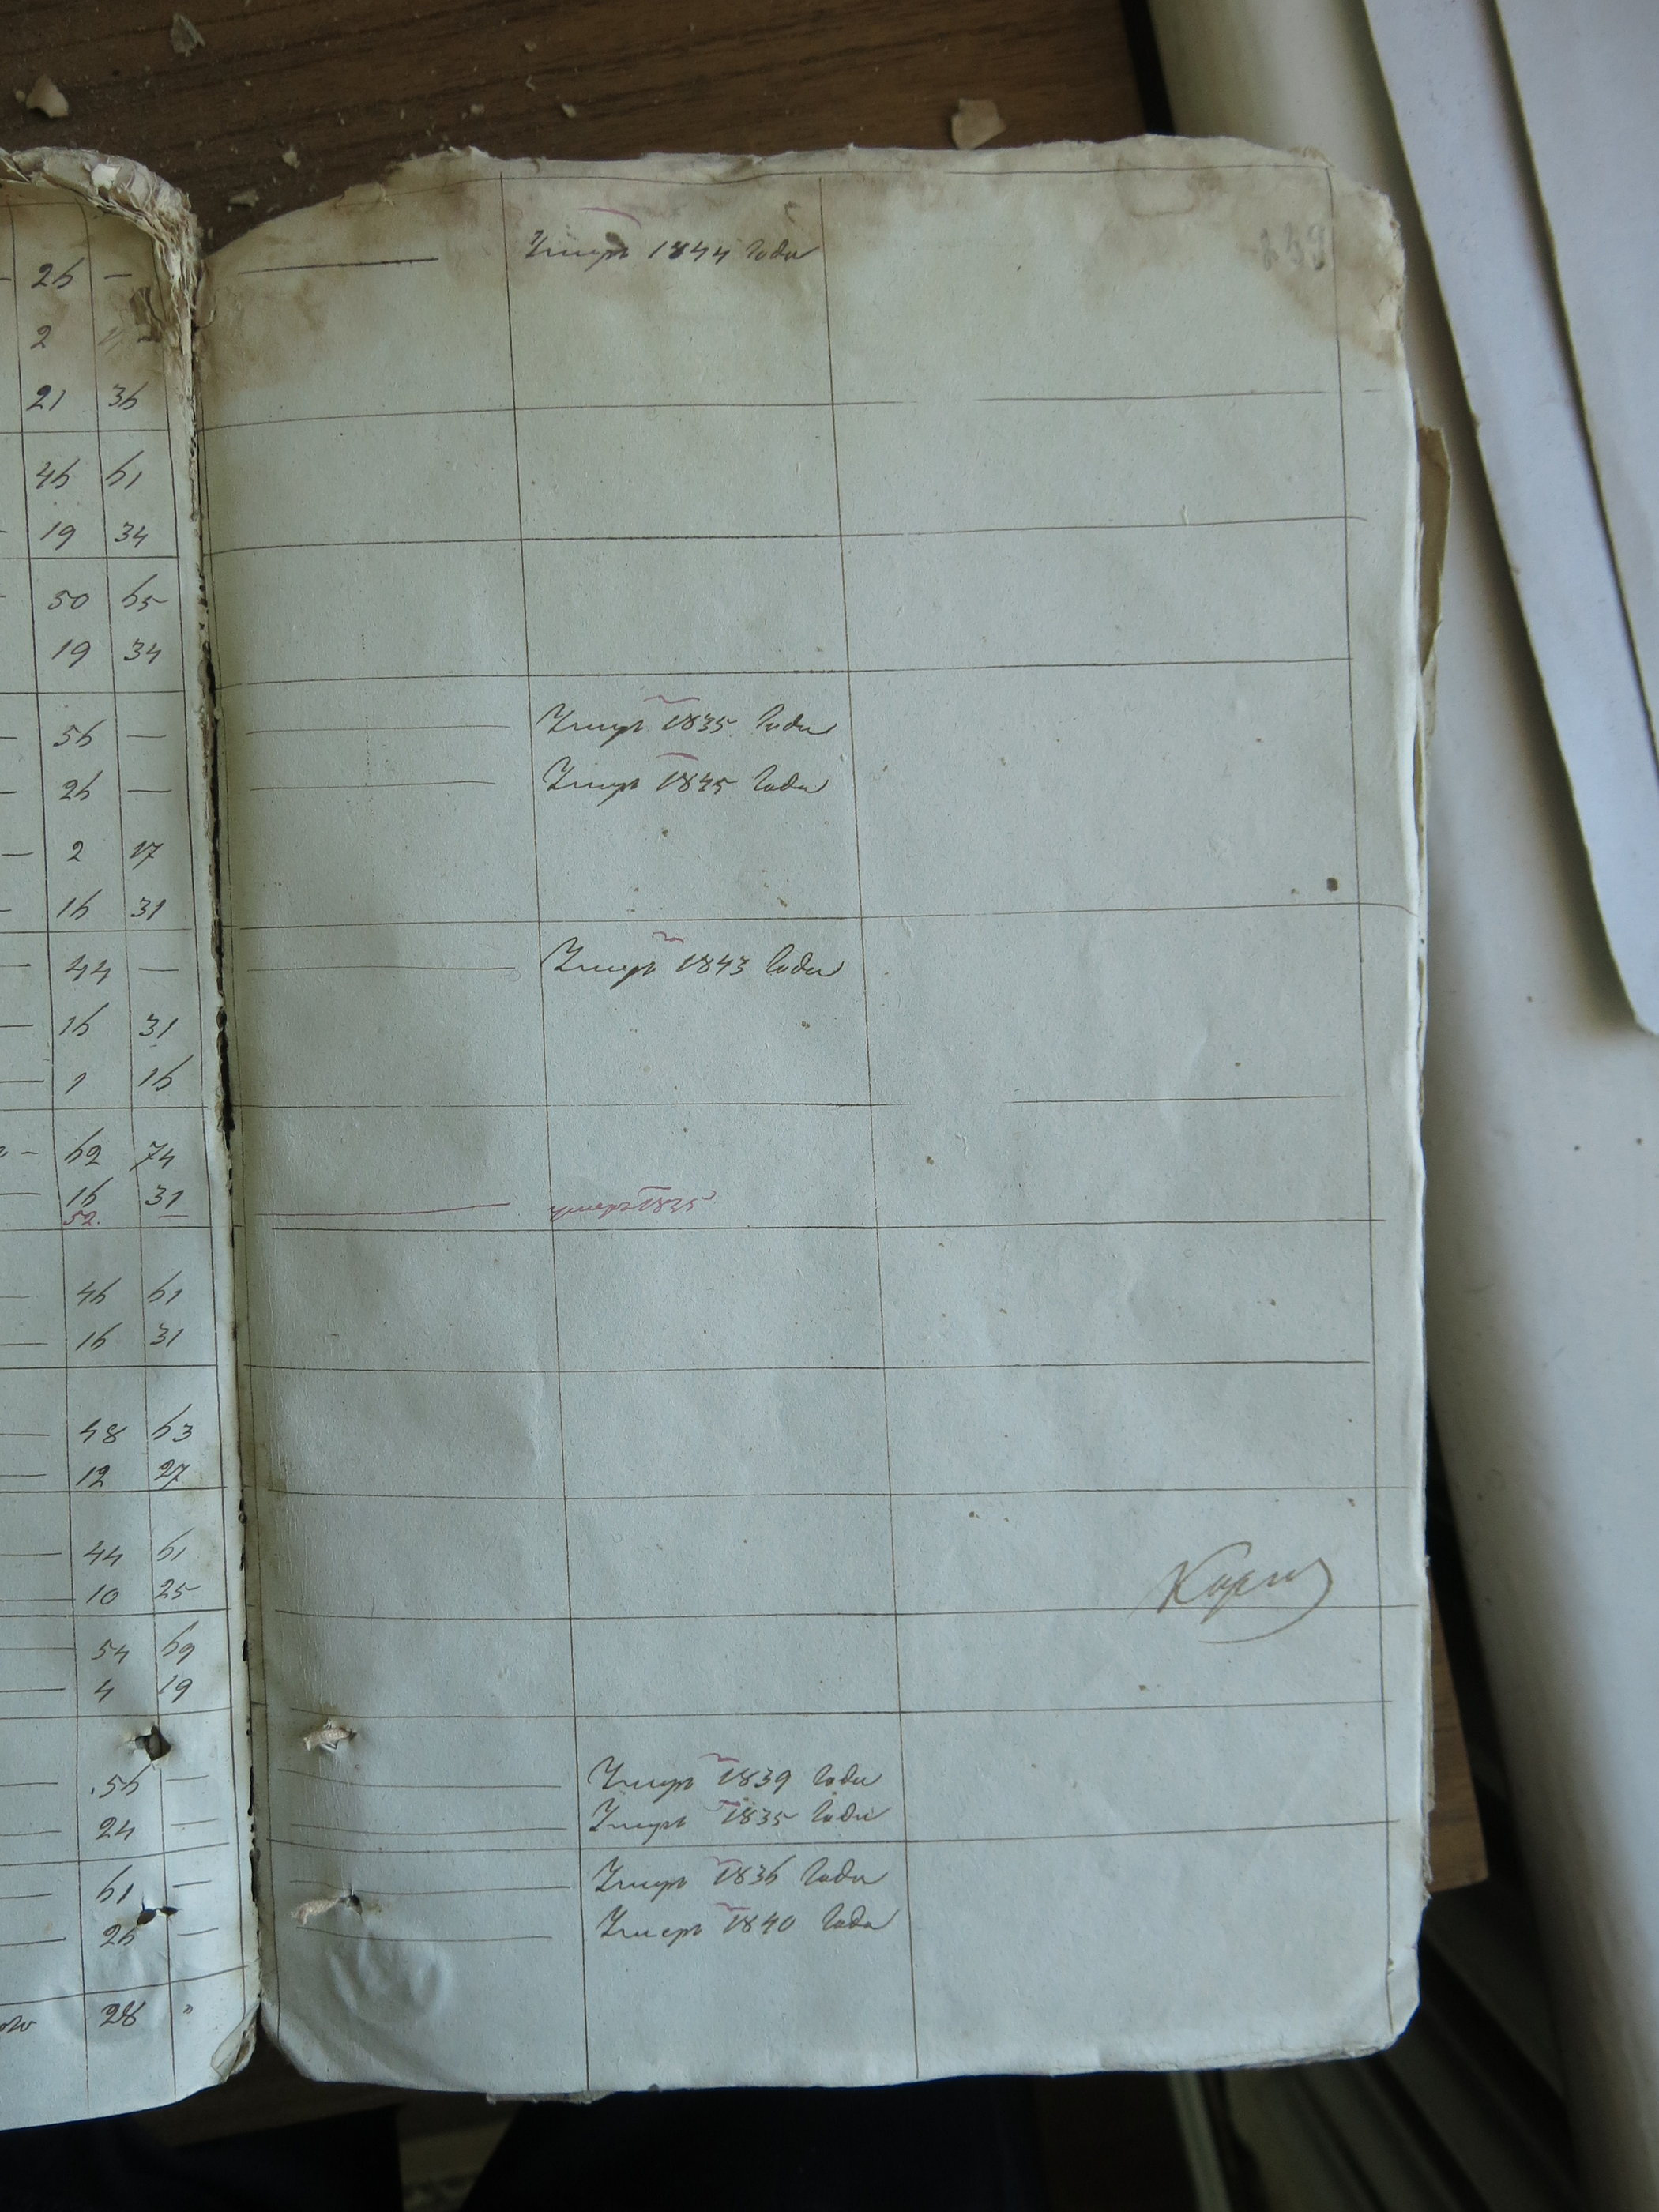 26 —
2
21 36
46 61
19 34
50 65
19 34
56 —
26 —
2 17
16 31
44 —
16 31
1 16
62 74
16 31
52.
46 61
16 31
48 63
12 27
44 61
10 25
54 69
4 19
56 —
24 —
61 —
26 —
28 "
239
Умеръ 1844 года
Умеръ 1835 года
Умеръ 1845 года
Умеръ 1843 года
умеръ 1835
Умеръ 1839 года
Умеръ 1835 года
Умеръ 1836 года
Умеръ 1840 года